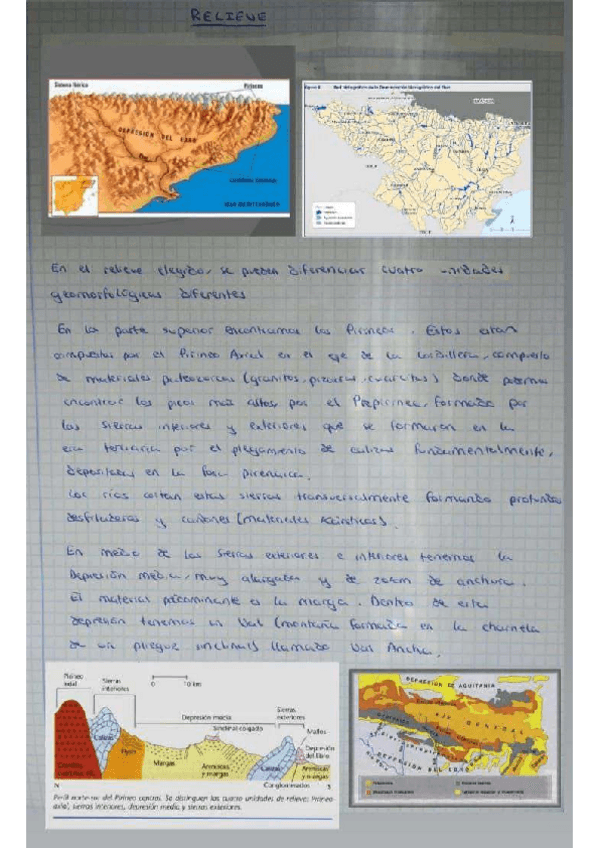 RELIEVE
Sistema Ibérico
Pirineos
DEPRESION DEL EBRO
MAR MEDITERRÁNEO
En el relieve elegido, se pueden diferenciar cuatro unidades
geomorfológicas diferentes
En la parte superior encontramos los Pirineos. Estos están
compuestos por el Pirineo Axial en el eje de la cordillera, compuesto
de materiales paleozoicos (granitos, pizarras, cuarcitas) donde podemos
encontrar los picos más altos, por el Prepirineo, formado por
las sierras interiores y exteriores que se formaron en la
era terciaria por el plegamiento de calizas fundamentalmente,
depositadas en la fosa pirenaica.
Los ríos cortan estas sierras transversalmente formando profundos
desfiladeros y cañones (materiales kársticos).
En medio de las sierras exteriores e interiores tenemos la
Depresión media, muy alargada y de de anchura.
El material predominante es la marga. Dentro de esta
depresión tenemos un Val (montaña formada en la charnela
de un pliegue) llamado Val Ancha.
Pirineo
axial
Sierras
interiores
0 10 km
Depresión media
Sinclinal colgado
Sierras
exteriores
Mallos
Depresión
del Ebro
Calizas
Flysch
Margas
Areniscas
y margas
Calizas
Areniscas
y margas
Conglomerados
N
S
Perfil norte-sur del Pirineo central. Se distinguen las cuatro unidades de relieve: Pirineo
axial, sierras interiores, depresión media y sierras exteriores.
DEPRESION DE AQUITANIA
DEPRESION DEL EBRO